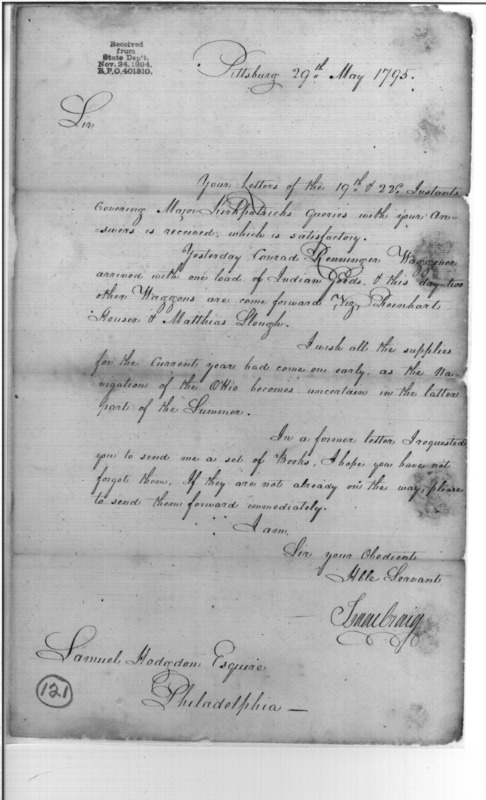 Received
from
State Dep't.
Nov. 24, 1894.
R.P.O. 401810.
Pittsburg 29th May 1795.
Sir
Your Letters of the 19th & 22d Instants
Covering Major Kirkpatricks queries with your An-
swers is received, which is satisfactory.
Yesterday Conrad Renninger Waggoner
arrived with one load of Indian Goods, & this day two
other Waggons are come forward Viz. Reinhart
Houser & Matthias Slough.
I wish all the supplies
for the Current year had come on early as the Na-
vigation of the Ohio becomes uncertain in the latter
part of the Summer.
In a former letter I requested
you to send me a set of Books, I hope you have not
forgot them. If they are not already on the way, please
to send them forward immediately.
I am
Sir your Obedient
Hble Servant
Isaac Craig
Samuel Hodgdon Esquire
Philadelphia —
121